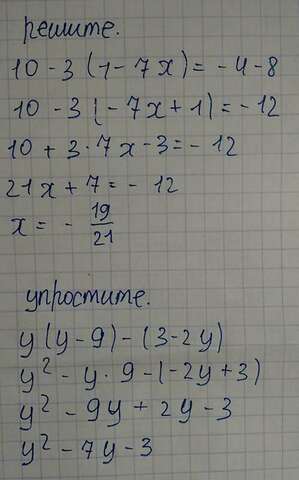 решите.
10 - 3 (1 - 7x) = - 4 - 8
10 - 3 (- 7x + 1) = - 12
10 + 3 · 7x - 3 = - 12
21x + 7 = - 12
x = - 19/21
упростите.
y (y - 9) - (3 - 2y)
y² - y · 9 - (- 2y + 3)
y² - 9y + 2y - 3
y² - 7y - 3